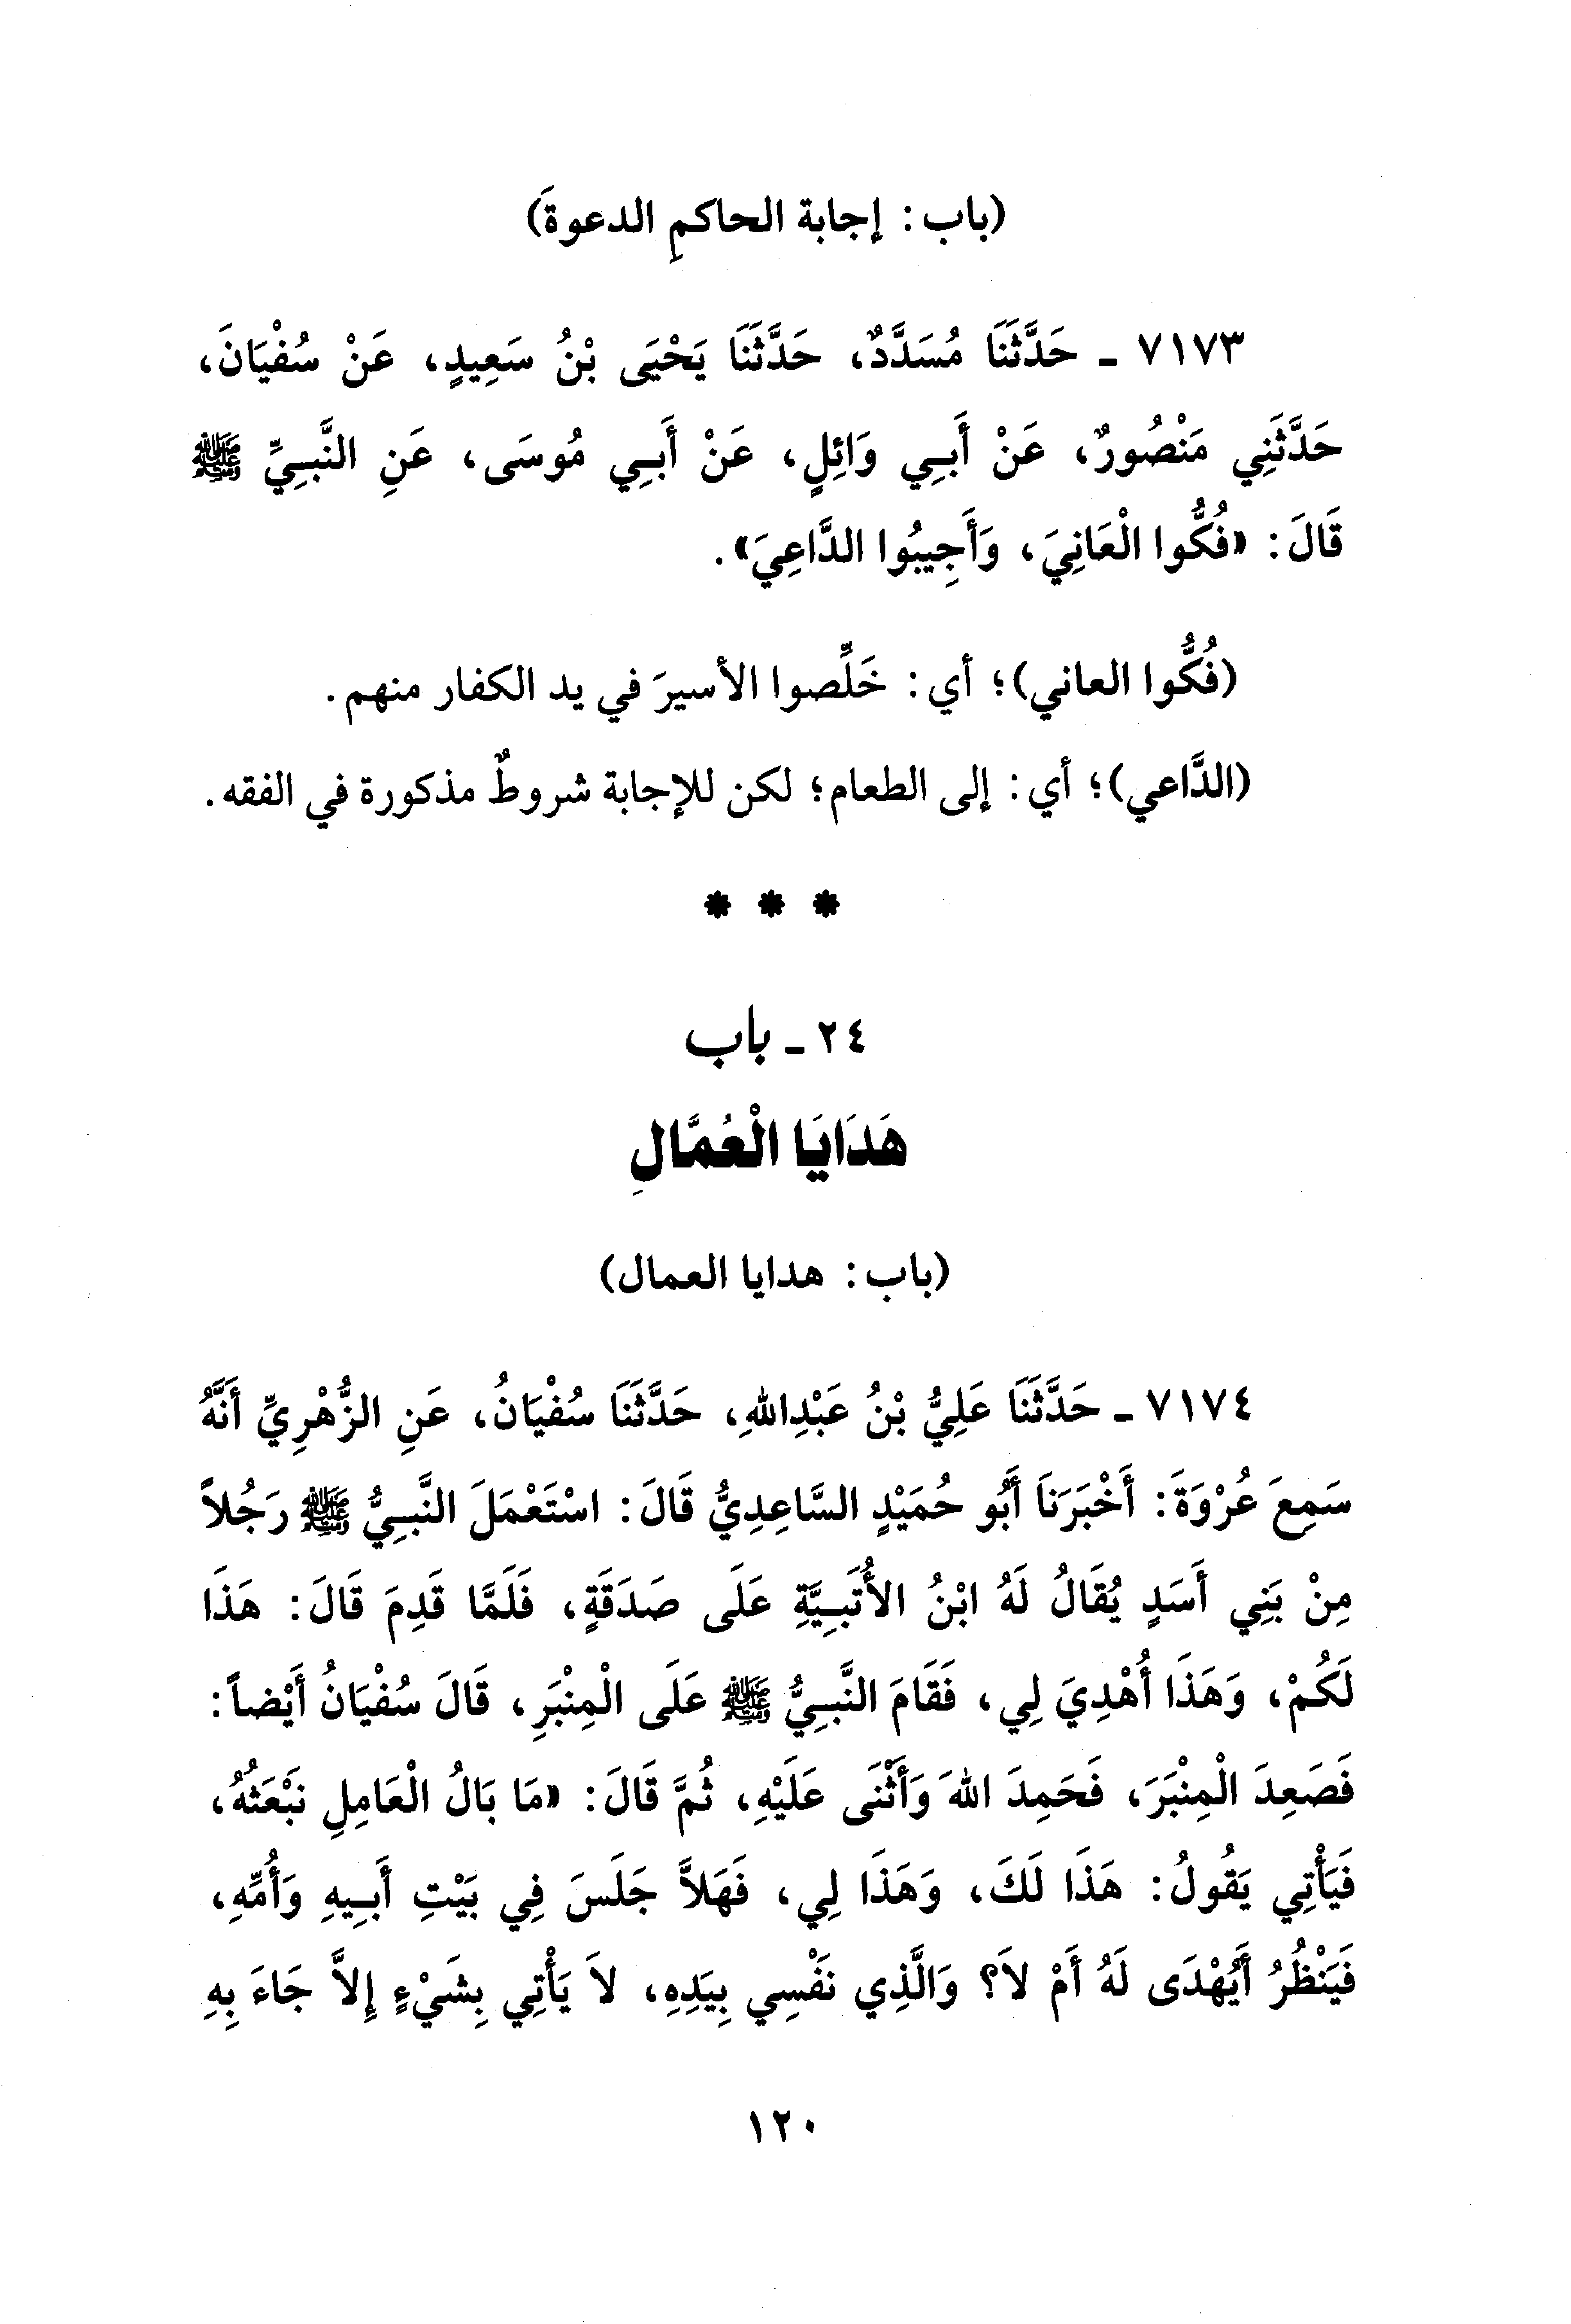 (باب: إجابة الحاكمِ الدعوةَ)
٧١٧٣ ـ حَدَّثَنَا مُسَدَّدٌ، حَدَّثَنَا يَحْيَى بْنُ سَعِيدٍ، عَنْ سُفْيَانَ،
حَدَّثَنِي مَنْصُورٌ، عَنْ أَبِي وَائِلٍ، عَنْ أَبِي مُوسَى، عَنِ النَّبِيِّ ﷺ
قَالَ: «فُكُّوا الْعَانِيَ، وَأَجِيبُوا الدَّاعِيَ».
(فُكُّوا العاني)؛ أي: خَلِّصوا الأسيرَ في يد الكفار منهم.
(الدَّاعي)؛ أي: إلى الطعام؛ لكن للإجابة شروطٌ مذكورة في الفقه.
* * *
٢٤ ـ باب
هَدَايَا الْعُمَّالِ
(باب: هدايا العمال)
٧١٧٤ ـ حَدَّثَنَا عَلِيُّ بْنُ عَبْدِاللهِ، حَدَّثَنَا سُفْيَانُ، عَنِ الزُّهْرِيِّ أَنَّهُ
سَمِعَ عُرْوَةَ: أَخْبَرَنَا أَبُو حُمَيْدٍ السَّاعِدِيُّ قَالَ: اسْتَعْمَلَ النَّبِيُّ ﷺ رَجُلاً
مِنْ بَنِي أَسَدٍ يُقَالُ لَهُ ابْنُ الأُتَبِيَّةِ عَلَى صَدَقَةٍ، فَلَمَّا قَدِمَ قَالَ: هَذَا
لَكُمْ، وَهَذَا أُهْدِيَ لِي، فَقَامَ النَّبِيُّ ﷺ عَلَى الْمِنْبَرِ، قَالَ سُفْيَانُ أَيْضاً:
فَصَعِدَ الْمِنْبَرَ، فَحَمِدَ اللهَ وَأَثْنَى عَلَيْهِ، ثُمَّ قَالَ: «مَا بَالُ الْعَامِلِ نَبْعَثُهُ،
فَيَأْتِي يَقُولُ: هَذَا لَكَ، وَهَذَا لِي، فَهَلاَّ جَلَسَ فِي بَيْتِ أَبِيهِ وَأُمِّهِ،
فَيَنْظُرُ أَيُهْدَى لَهُ أَمْ لاَ؟ وَالَّذِي نَفْسِي بِيَدِهِ، لاَ يَأْتِي بِشَيْءٍ إِلاَّ جَاءَ بِهِ
١٢٠